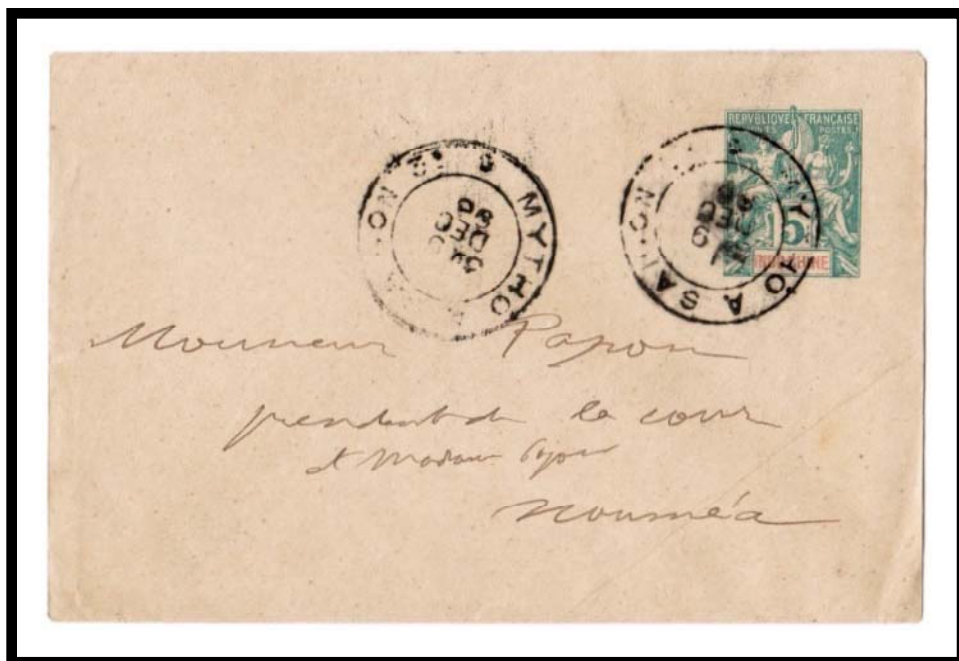 REPVBLIQVE FRANÇAISE
POSTES
5
INDOCHINE
MYTHO A SAIGON
DEC
MYTHO A SAIGON
DEC
Monsieur Papon
president de la cour
et Madame Papon
Nouméa